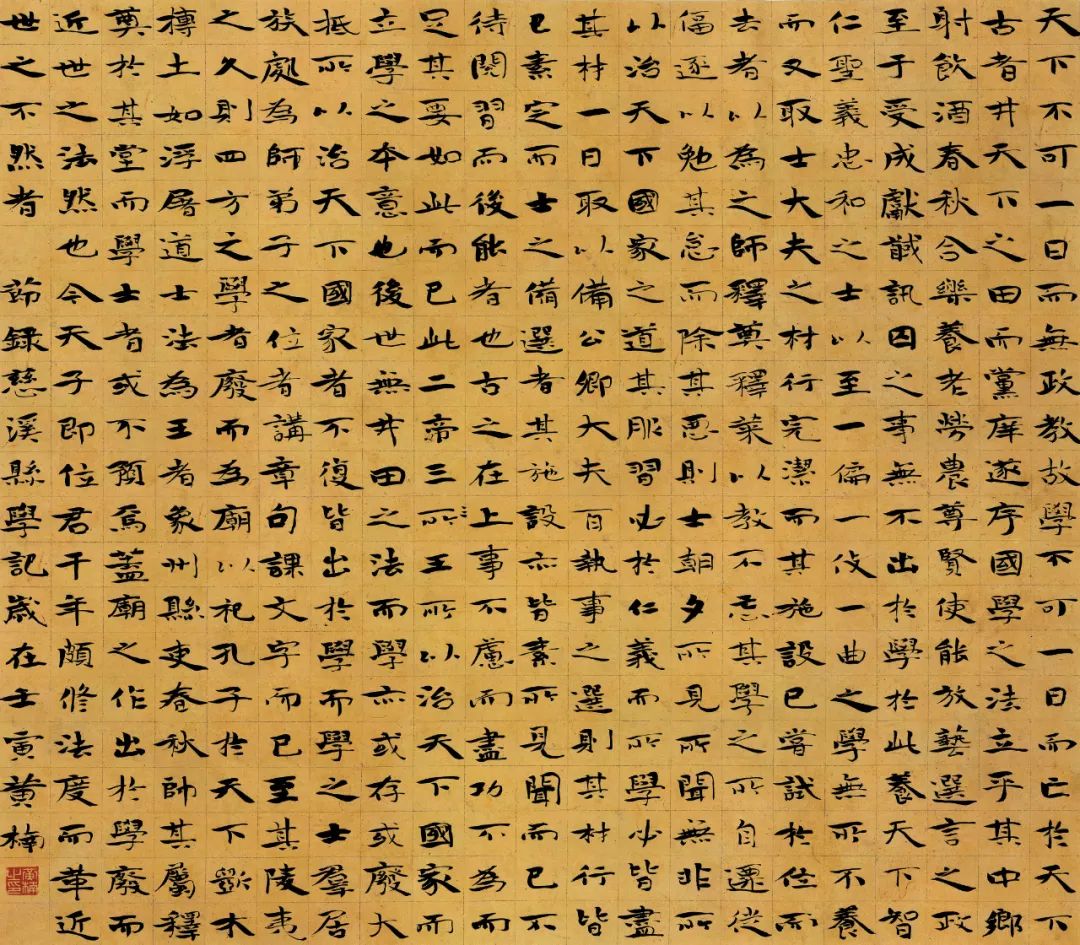 天下不可一日而無政教故學不可一日而亡於天下
古者井天下之田而黨庠遂序國學之法立乎其中鄉
射飲酒春秋合樂養老勞農尊賢使能放藝選言之政
至于受成獻馘訊囚之事無不出於學於此養天下智
仁聖義忠和之士以至一偏一伎一曲之學無所不養
而又取士大夫之材行完潔而其施設已嘗試於位而
去者以為之師釋奠釋菜以教不忘其學之所自遷從
偪逐以勉其怠而除其惡則士朝夕所見所聞無非所
以治天下國家之道其服習必於仁義而所學必皆盡
其材一日取以備公卿大夫百執事之選則其材行皆
已素定而士之備選者其施設亦皆素所見聞而已不
待閱習而後能者也古之在上事不慮而盡功不為而
足其要如此而已此二帝三所王所以治天下國家而
立學之本意也後世無井田之法而學亦或存或廢大
抵所以治天下國家者不復皆出於學而學之士羣居
族處為師弟子之位者講章句課文字而已至其陵夷
之久則四方之學者廢而為廟以祀孔子於天下斲木
摶土如浮屠道士法為王者象州縣吏春秋帥其屬釋
奠於其堂而學士者或不預焉蓋廟之作出於學廢而
近世之法然也今天子即位君千年頗修法度而革近
世之不然者 節錄慈溪縣學記歲在壬寅黃楠